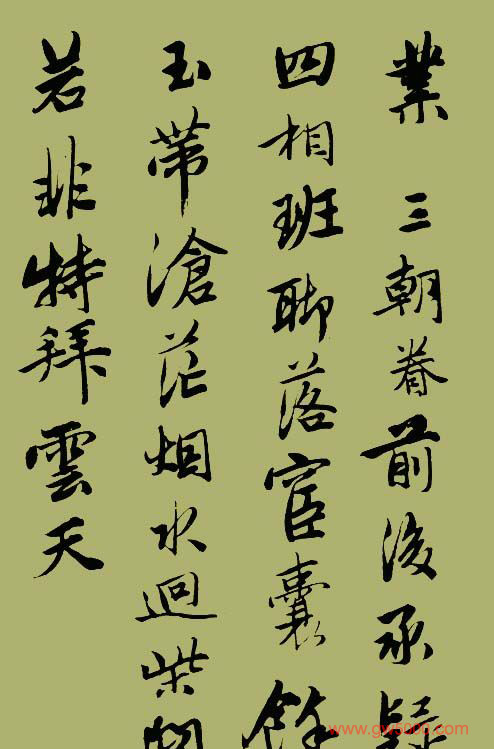 業 三朝眷前後承疑
四相班聊落宦囊餘
玉帶滄茫烟水迴柴
若非特拜雲天
www.gw5000.com